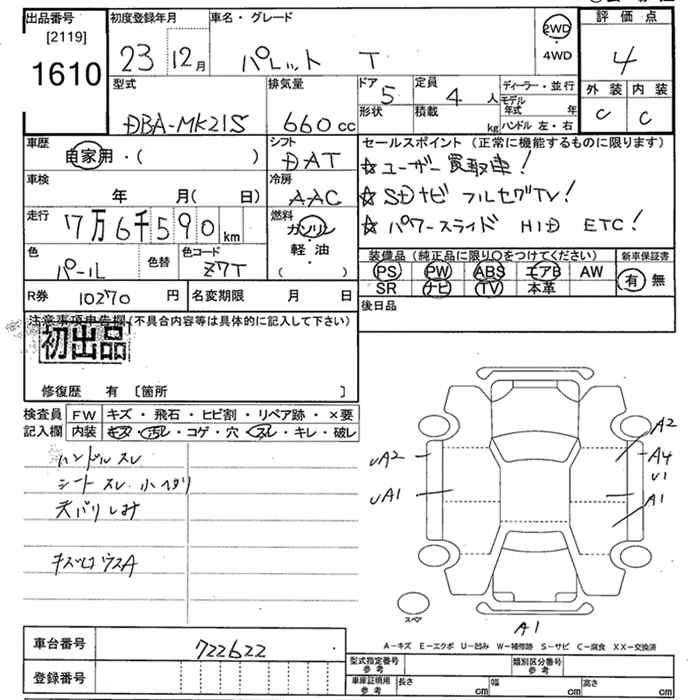 出品番号 初度登録年月 車名・グレード 2WD 評価点
[2119] 1610 23 12月 パレット T ・4WD 4
型式 排気量 ドア 5 定員 4人 ディーラー・並行 外装 内装
DBA-MK21S 660cc 形状 積載 kg モデル年式 年 C C
ハンドル 左・右
車歴 シフト セールスポイント(正常に機能するものに限ります)
自家用・( ) DAT ☆ユーザー買取車!
車検 冷房 ☆SDナビ フルセグTV!
年 月(日) AAC ☆パワースライド HID ETC!
走行 7万6千590km 燃料 ガソリン・軽油・( )
色 色替 色コード 装備品(純正品に限り〇をつけてください) 新車保証書
パール Z7T PS PW ABS エアB AW 有 無
R券 10270円 名変期限 月 日 SR ナビ TV 本革
後日品
注意事項申告欄(不具合内容等は具体的に記入して下さい)
初出品
修復歴 有 〔箇所 〕
検査員 FW キズ・飛石・ヒビ割・リペア跡・×要
記入欄 内装 キズ・汚レ・コゲ・穴・スレ・キレ・破レ
ハンドルスレ
シートスレ 小ヘタリ
天バリしみ
UA2
UA1
A2
A4
U1
A1
スペア
A1
A-キズ E-エクボ U-凹み W-補修跡 S-サビ C-腐食 XX-交換済
車台番号 722622
登録番号
型式指定番号 参考 類別区分番号 参考
車庫証明用 参考 長さ cm 幅 cm 高さ cm